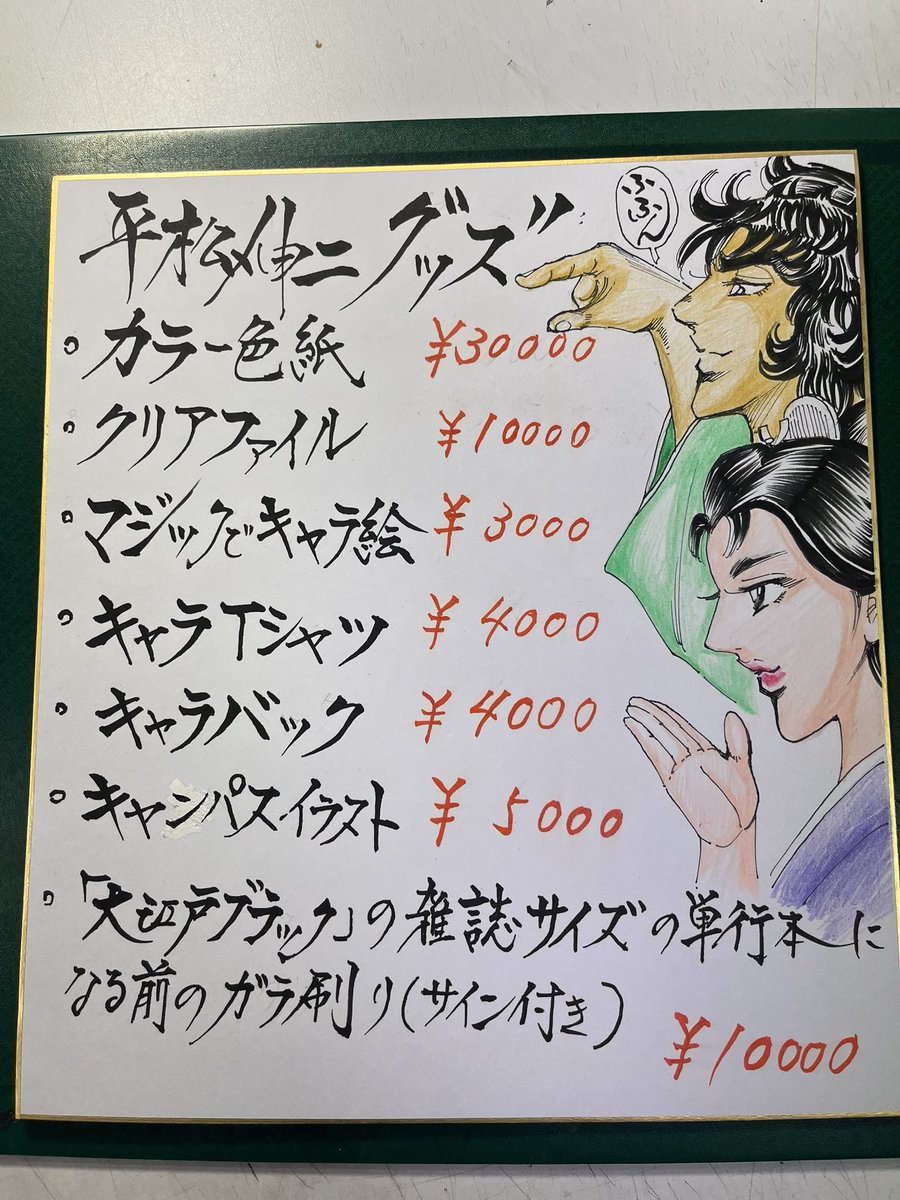 平松伸二グッズ
ふふん
。カラー色紙 ¥30000
。クリアファイル ¥10000
。マジックでキャラ絵 ¥3000
。キャラTシャツ ¥4000
。キャラバック ¥4000
。キャンパスイラスト ¥5000
。「大江戸ブラック」の雑誌サイズの単行本に
なる前のガラ刷り(サイン付き)
¥10000